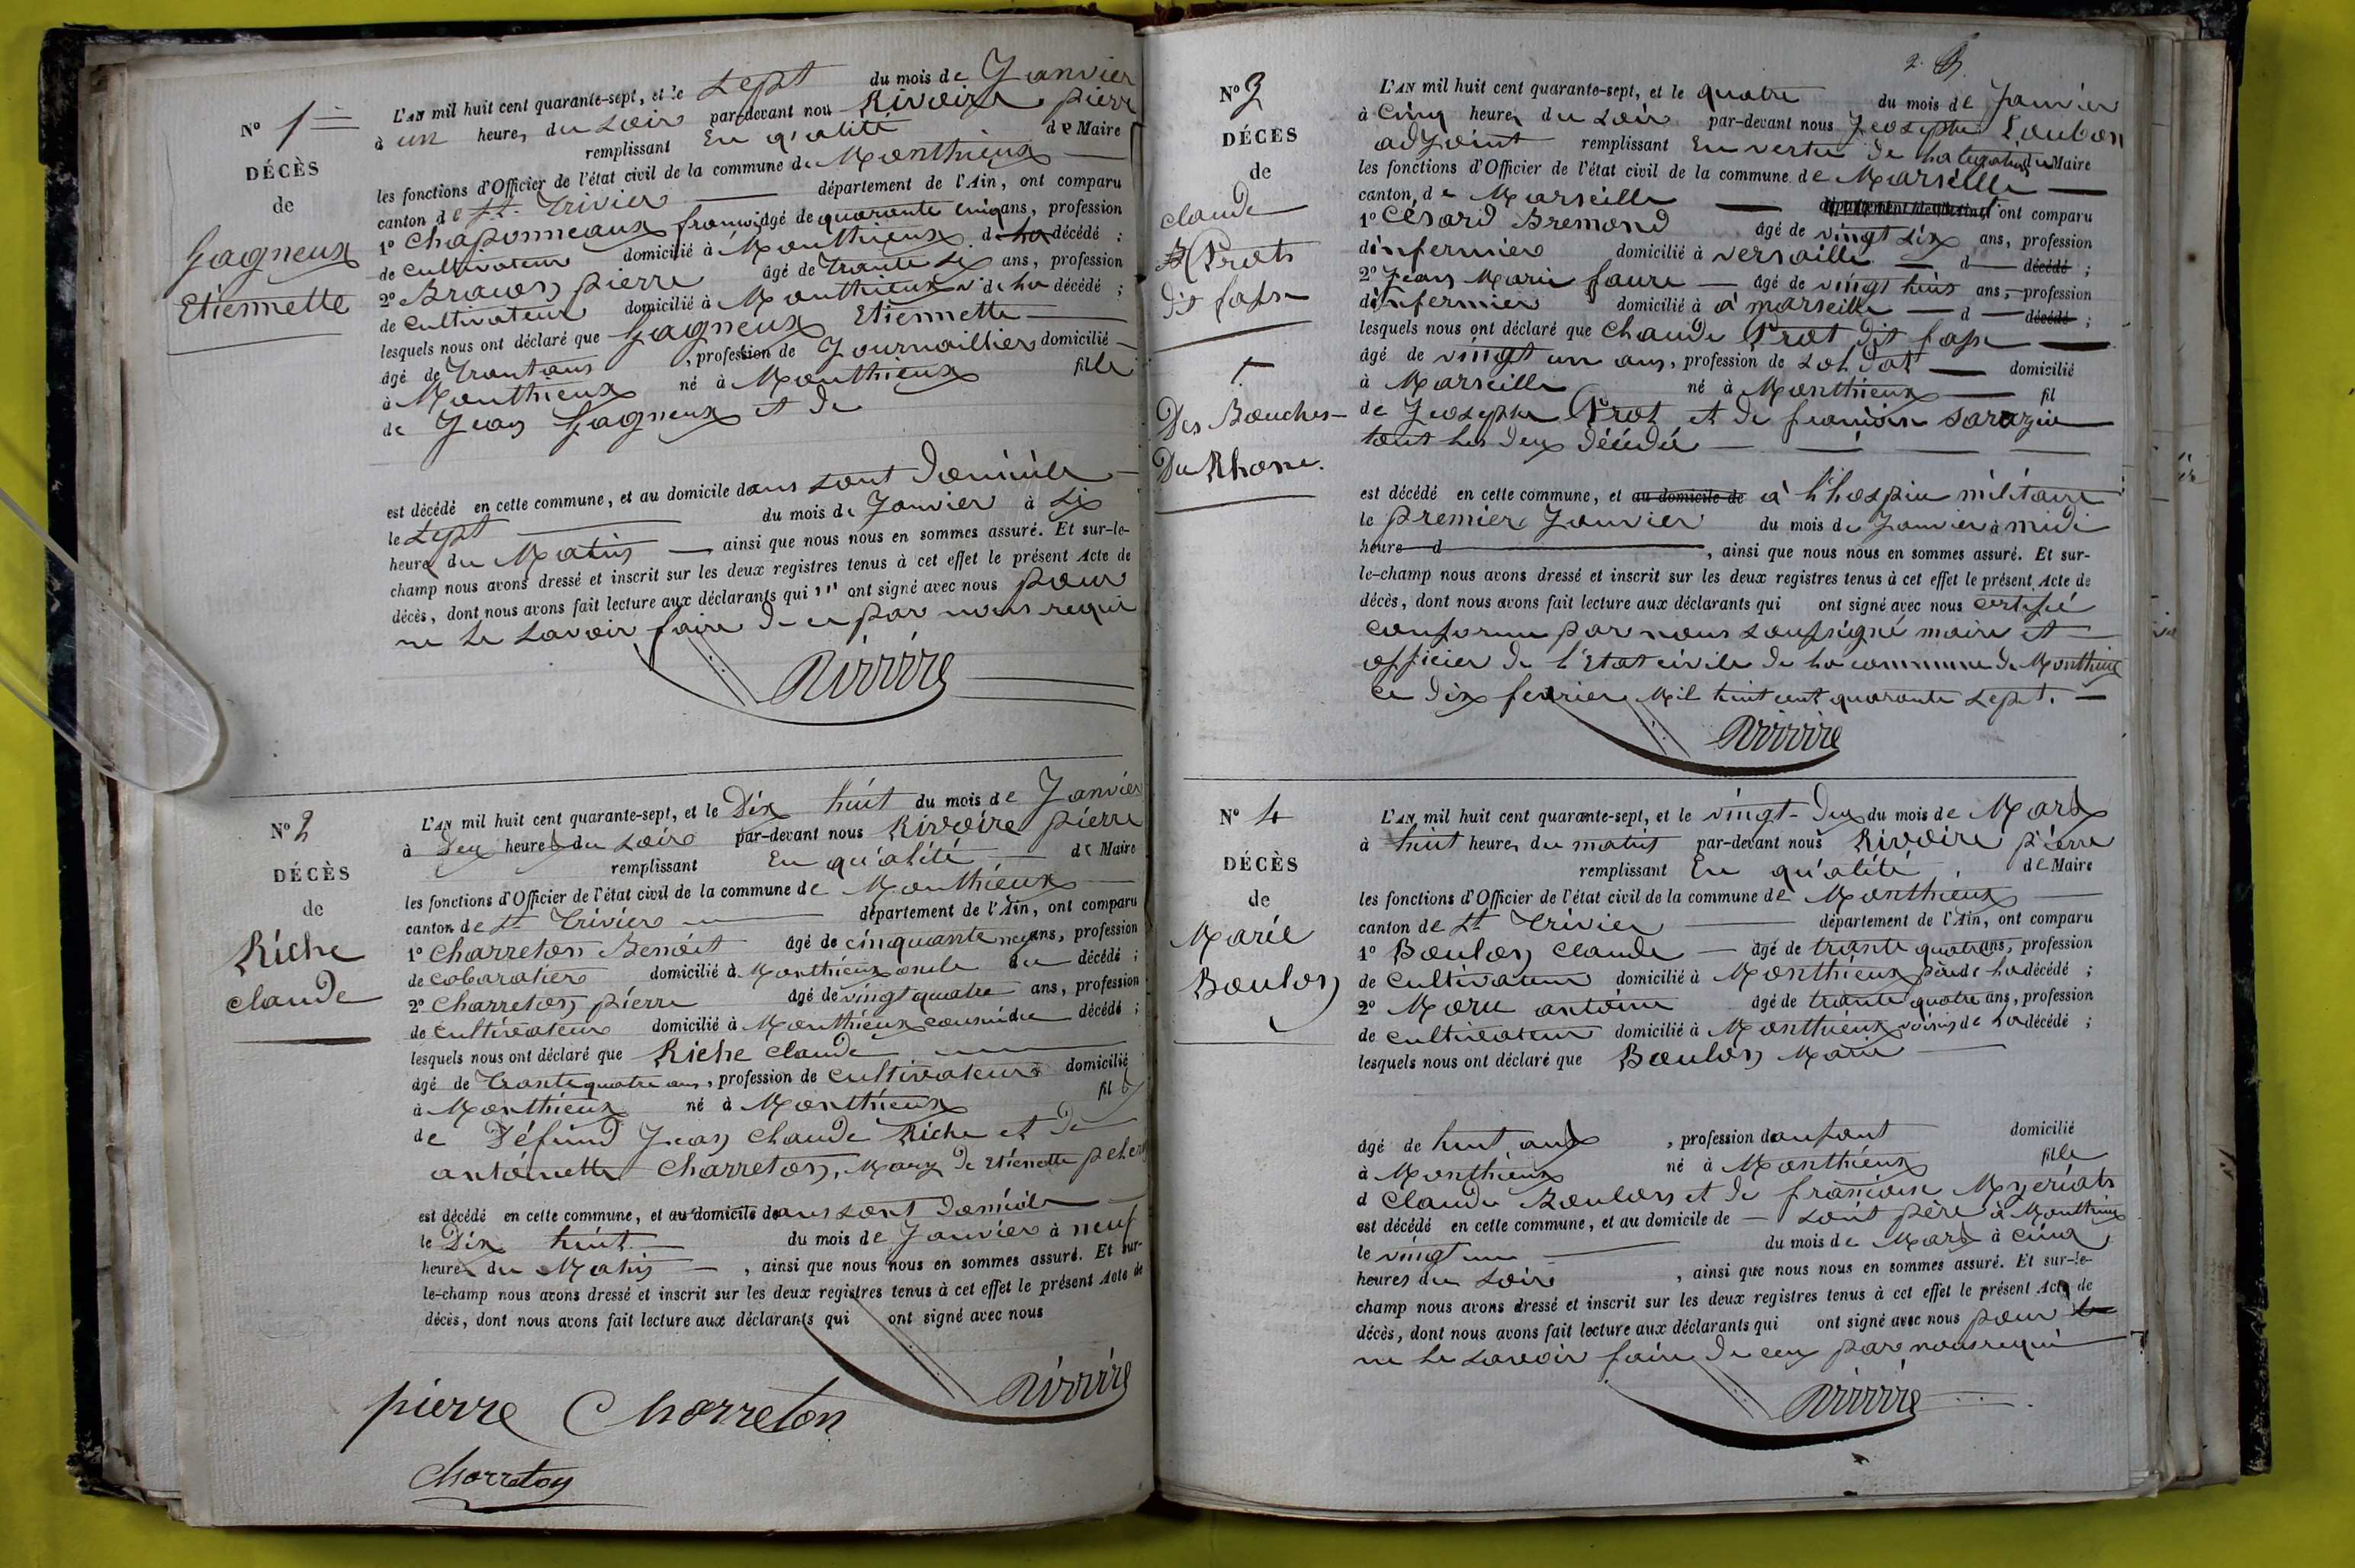 N° 1
DÉCÈS
de
Gagneux
Etiennette
L'AN mil huit cent quarante-sept, et le Sept du mois de Janvier
à un heures du Soir par-devant nous Rivoire pierre
remplissant En q'ualité de Maire
les fonctions d'Officier de l'état civil de la commune de Monthieux
canton de St. Trivier département de l'Ain, ont comparu
1° Chaponneaux françois âgé de quarante cinq ans, profession
de cultivateur domicilié à Monthieux d la décédé ;
2° pierre âgé de trante six ans, profession
de cultivateur domicilié à Monthieux de la décédé ;
lesquels nous ont déclaré que Gagneux Etiennette
âgé de trant ans , profession de Journaillier domicilié
à Monthieux né à Monthieux fille
de Jean Gagneux et de
est décédé en cette commune, et au domicile dans sont Domicile
le Sept du mois de Janvier à Six
heure du Matin ainsi que nous nous en sommes assuré. Et sur-le-
champ nous avons dressé et inscrit sur les deux registres tenus à cet effet le présent Acte de
décès, dont nous avons fait lecture aux déclarants qui n' ont signé avec nous pour
ne le Savoir faire de ce par nous requi
Rivoire
N° 2
DÉCÈS
de
Riche
claude
L'AN mil huit cent quarante-sept, et le Dix huit du mois de Janvier
à Deux heures du Soire par-devant nous Rivoire pierre
remplissant En qu'alité de Maire
les fonctions d'Officier de l'état civil de la commune de Monthieux
canton de St Trivier département de l'Ain, ont comparu
1° Charreton Benoit âgé de cinquante neuf ans, profession
de cabaratier domicilié à Monthieux oncle du décédé ;
2° Charreton pierre âgé de vingt quatre ans, profession
de cultivateur domicilié à Monthieux cousin du décédé ;
lesquels nous ont déclaré que Riche claude
âgé de trante quatre ans, profession de cultivateur domicilié
à Monthieux né à Monthieux fils
de Défund Jean Claude Riche et de
antoinette Charreton, Mary de Etienette
est décédé en cette commune, et au domicile dans sont Domicile
le Dix huit du mois de Janvier à neuf
heures du Matin , ainsi que nous nous en sommes assuré. Et sur-
le-champ nous avons dressé et inscrit sur les deux registres tenus à cet effet le présent Acte de
décès, dont nous avons fait lecture aux déclarants qui ont signé avec nous
Rivoire
pierre Charreton
Charreton
N° 3
DÉCÈS
de
claude
Prost
dit fasse
Des Bouches
Du Rhone.
2.
L'AN mil huit cent quarante-sept, et le quatre du mois de Janvier
à Cinq heures du Soir par-devant nous Joseph Loubon
adjoint remplissant En vertu de la légation du Maire
les fonctions d'Officier de l'état civil de la commune de Marseille
canton de Marseille ont comparu
1° Césard Bremond âgé de vingt six ans, profession
dinfermier domicilié à Versaille d décédé ;
2° Jean Marie faure âgé de vingt huit ans, profession
dinfermier domicilié à à marseille d décédé ;
lesquels nous ont déclaré que Claude Prost dit fasse
âgé de vingt un ans, profession de Soldat domicilié
à Marseille né à Monthieux fil
de Joseph Prost et de françoise Sarazin
tout les deux Décédé
est décédé en cette commune, et au domicile de à l'hospice militaire
le premier Janvier du mois de Janvier à midi
heure d , ainsi que nous nous en sommes assuré. Et sur-
le-champ nous avons dressé et inscrit sur les deux registres tenus à cet effet le présent Acte de
décès, dont nous avons fait lecture aux déclarants qui ont signé avec nous certifié
conforme par nous Soussigné maire et
officier de l'Etat civile de la commune de Monthieux
ce dix fevrier Mil huit cent quarante Sept.
Rivoire
N° 4
DÉCÈS
de
Marie
Boulon
L'AN mil huit cent quarante-sept, et le vingt-deux du mois de Mars
à huit heures du matin par-devant nous Rivoire pierre
remplissant En qu'alité de Maire
les fonctions d'Officier de l'état civil de la commune de Monthieux
canton de St Trivier département de l'Ain, ont comparu
1° Boulon Claude âgé de trante quatre ans, profession
de cultivateur domicilié à Monthieux père de la décédé ;
2° antoine âgé de trante quatre ans, profession
de cultivateur domicilié à Monthieux voisin de la décédé ;
lesquels nous ont déclaré que Boulon Marie
âgé de huit ans , profession d'anfant domicilié
à Monthieux né à Monthieux fille
d Claude Boulon et de françoise
est décédé en cette commune, et au domicile de sont père à Monthieux
le vingt un du mois de Mars à cinq
heures du Soire , ainsi que nous nous en sommes assuré. Et sur-le-
champ nous avons dressé et inscrit sur les deux registres tenus à cet effet le présent Acte de
décès, dont nous avons fait lecture aux déclarants qui ont signé avec nous pour
ne le Savoir faire de ceux par nous requi
Rivoire